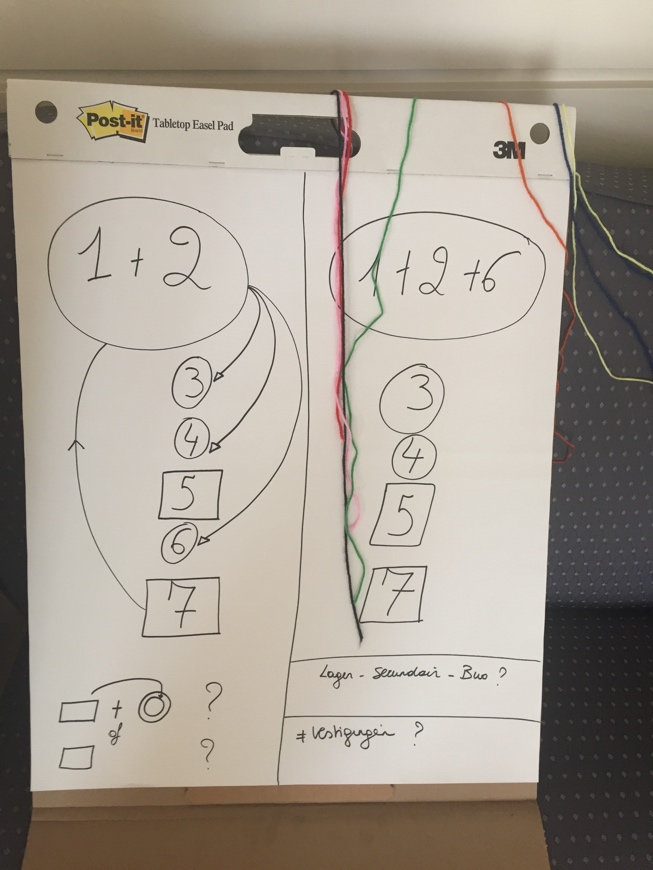 Post-it
Tabletop Easel Pad
3M
1 + 2
3
4
5
6
7
+
of
?
?
1 + 2 + 6
3
4
5
7
Lager - Secundair - Buo ?
≠ Vestigingen ?